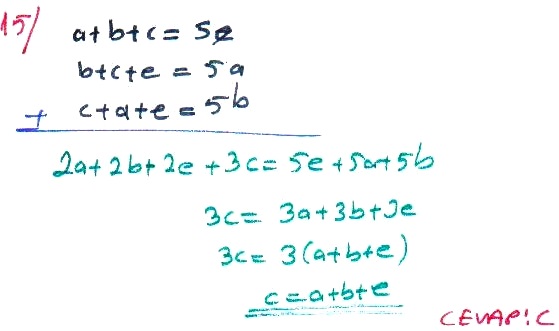 15/ a+b+c = 5e
b+c+e = 5a
+ c+a+e = 5b
2a+2b+2e+3c = 5e+5a+5b
3c = 3a+3b+3e
3c = 3(a+b+e)
c = a+b+e
CEVAP: C